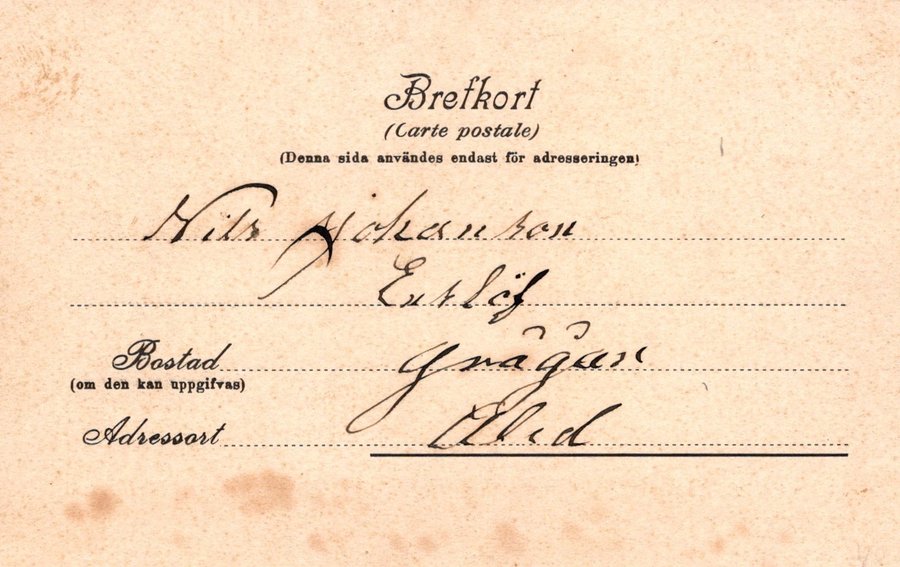 Brefkort
(Carte postale)
(Denna sida användes endast för adresseringen)
Nils Johanson
Enslöf
Bostad Grågån
(om den kan uppgifvas)
Adressort